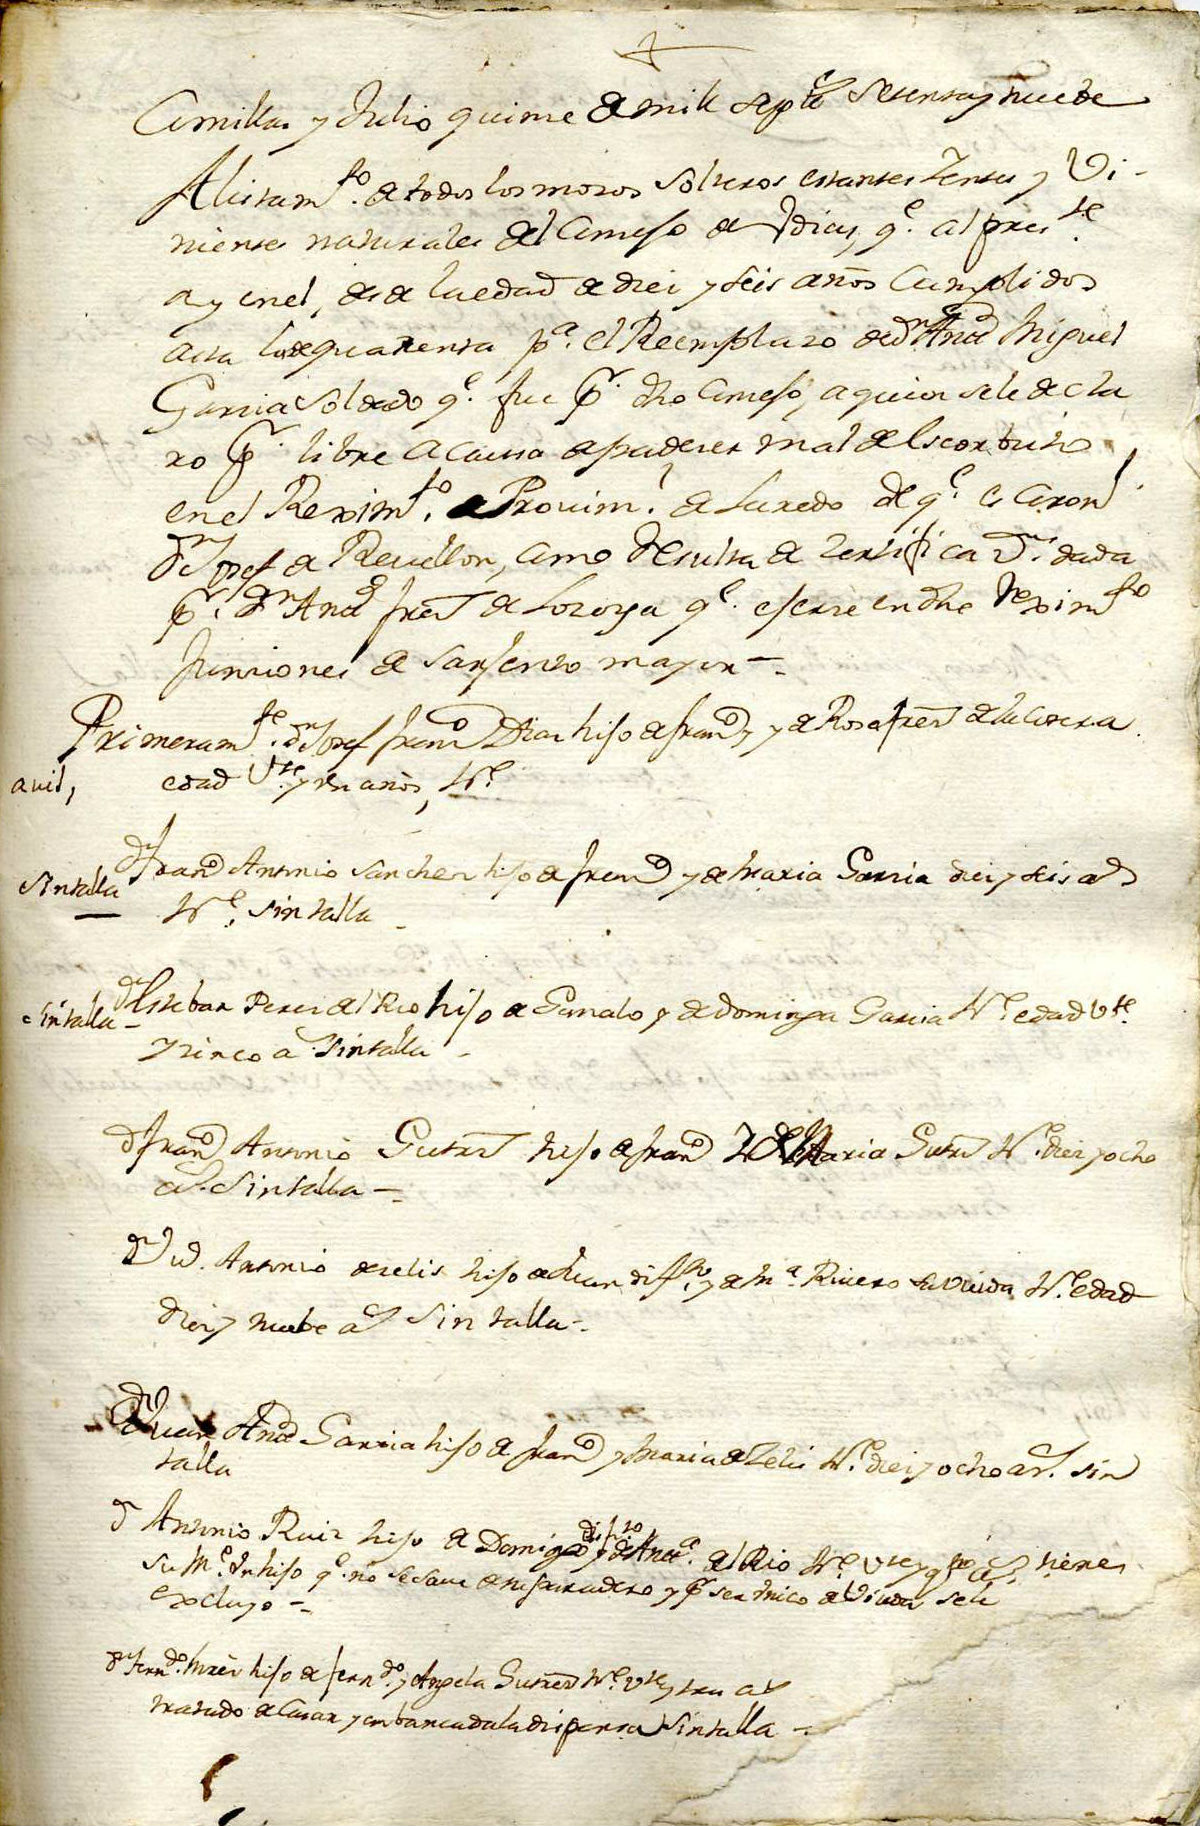 Comillas y Julio quinze de mill septos Setenta y nuebe
Alistamto. de todos los mozos solteros estantes Zentes y Vi-
nientes naturales del Conzejo de Ydias, qe. al preste.
ay en el, desde la edad de diez y seis años Cumplidos
asta los de quarenta pa. el Reemplazo de dn Andrs Miguel
Garzia Soldado qe. fue pr. dho Conzejo, a quien se le decla
ro pr. libre a causa de padezer mal de Escorbuto
en el Reximto. de Provinl. de Laredo de qe. es Coronl.
dn Josef de Revillon, como Resulta de Zertificazn. dada
pr. dn Andrs frnz de Lozoya qe. ejerze en dho Reximto
funziones de Sarjento mayor-
Primeramte. dn Josef franco Diaz hijo de franco y de Rosa frnz de la Cotera
edad Vte. y un años, Nl.
auil,
dn Franco Antonio Sanchez hijo de franco y de Maria Garzia diez y seis as
Nl. sin talla
Sin talla
dn Esteban Perez del Rio hijo de Gonzalo y de Dominga Garzia Nl. edad Vte.
y zinco as. sin talla
Sin talla
dn franco Antonio Gutrrz hijo de franco y de Maria Gutrrz Nl. diez y ocho
as. Sin talla-
dn Antonio de zelis hijo de Juan difto. y de Ma. Rivero su Viuda Nl. edad
diez y nuebe as Sin talla-
dn Juan Andrs Garzia hijo de franco y Maria de Zelis Nl. diez y ocho as. sin
talla
dn Antonio Ruiz hijo de Domingo difto y de Anta. del Rio Nl. Vte y as. tiene
su Me. Un hijo qe. no se save de su paradero y pr ser unico de Viuda se le
Excluyo-
dn Ferndo. hijo de ferndo. y Angela Gutrrz Nl. Vte y tres as
tratado de Casar y embancada la dispensa Sin talla-